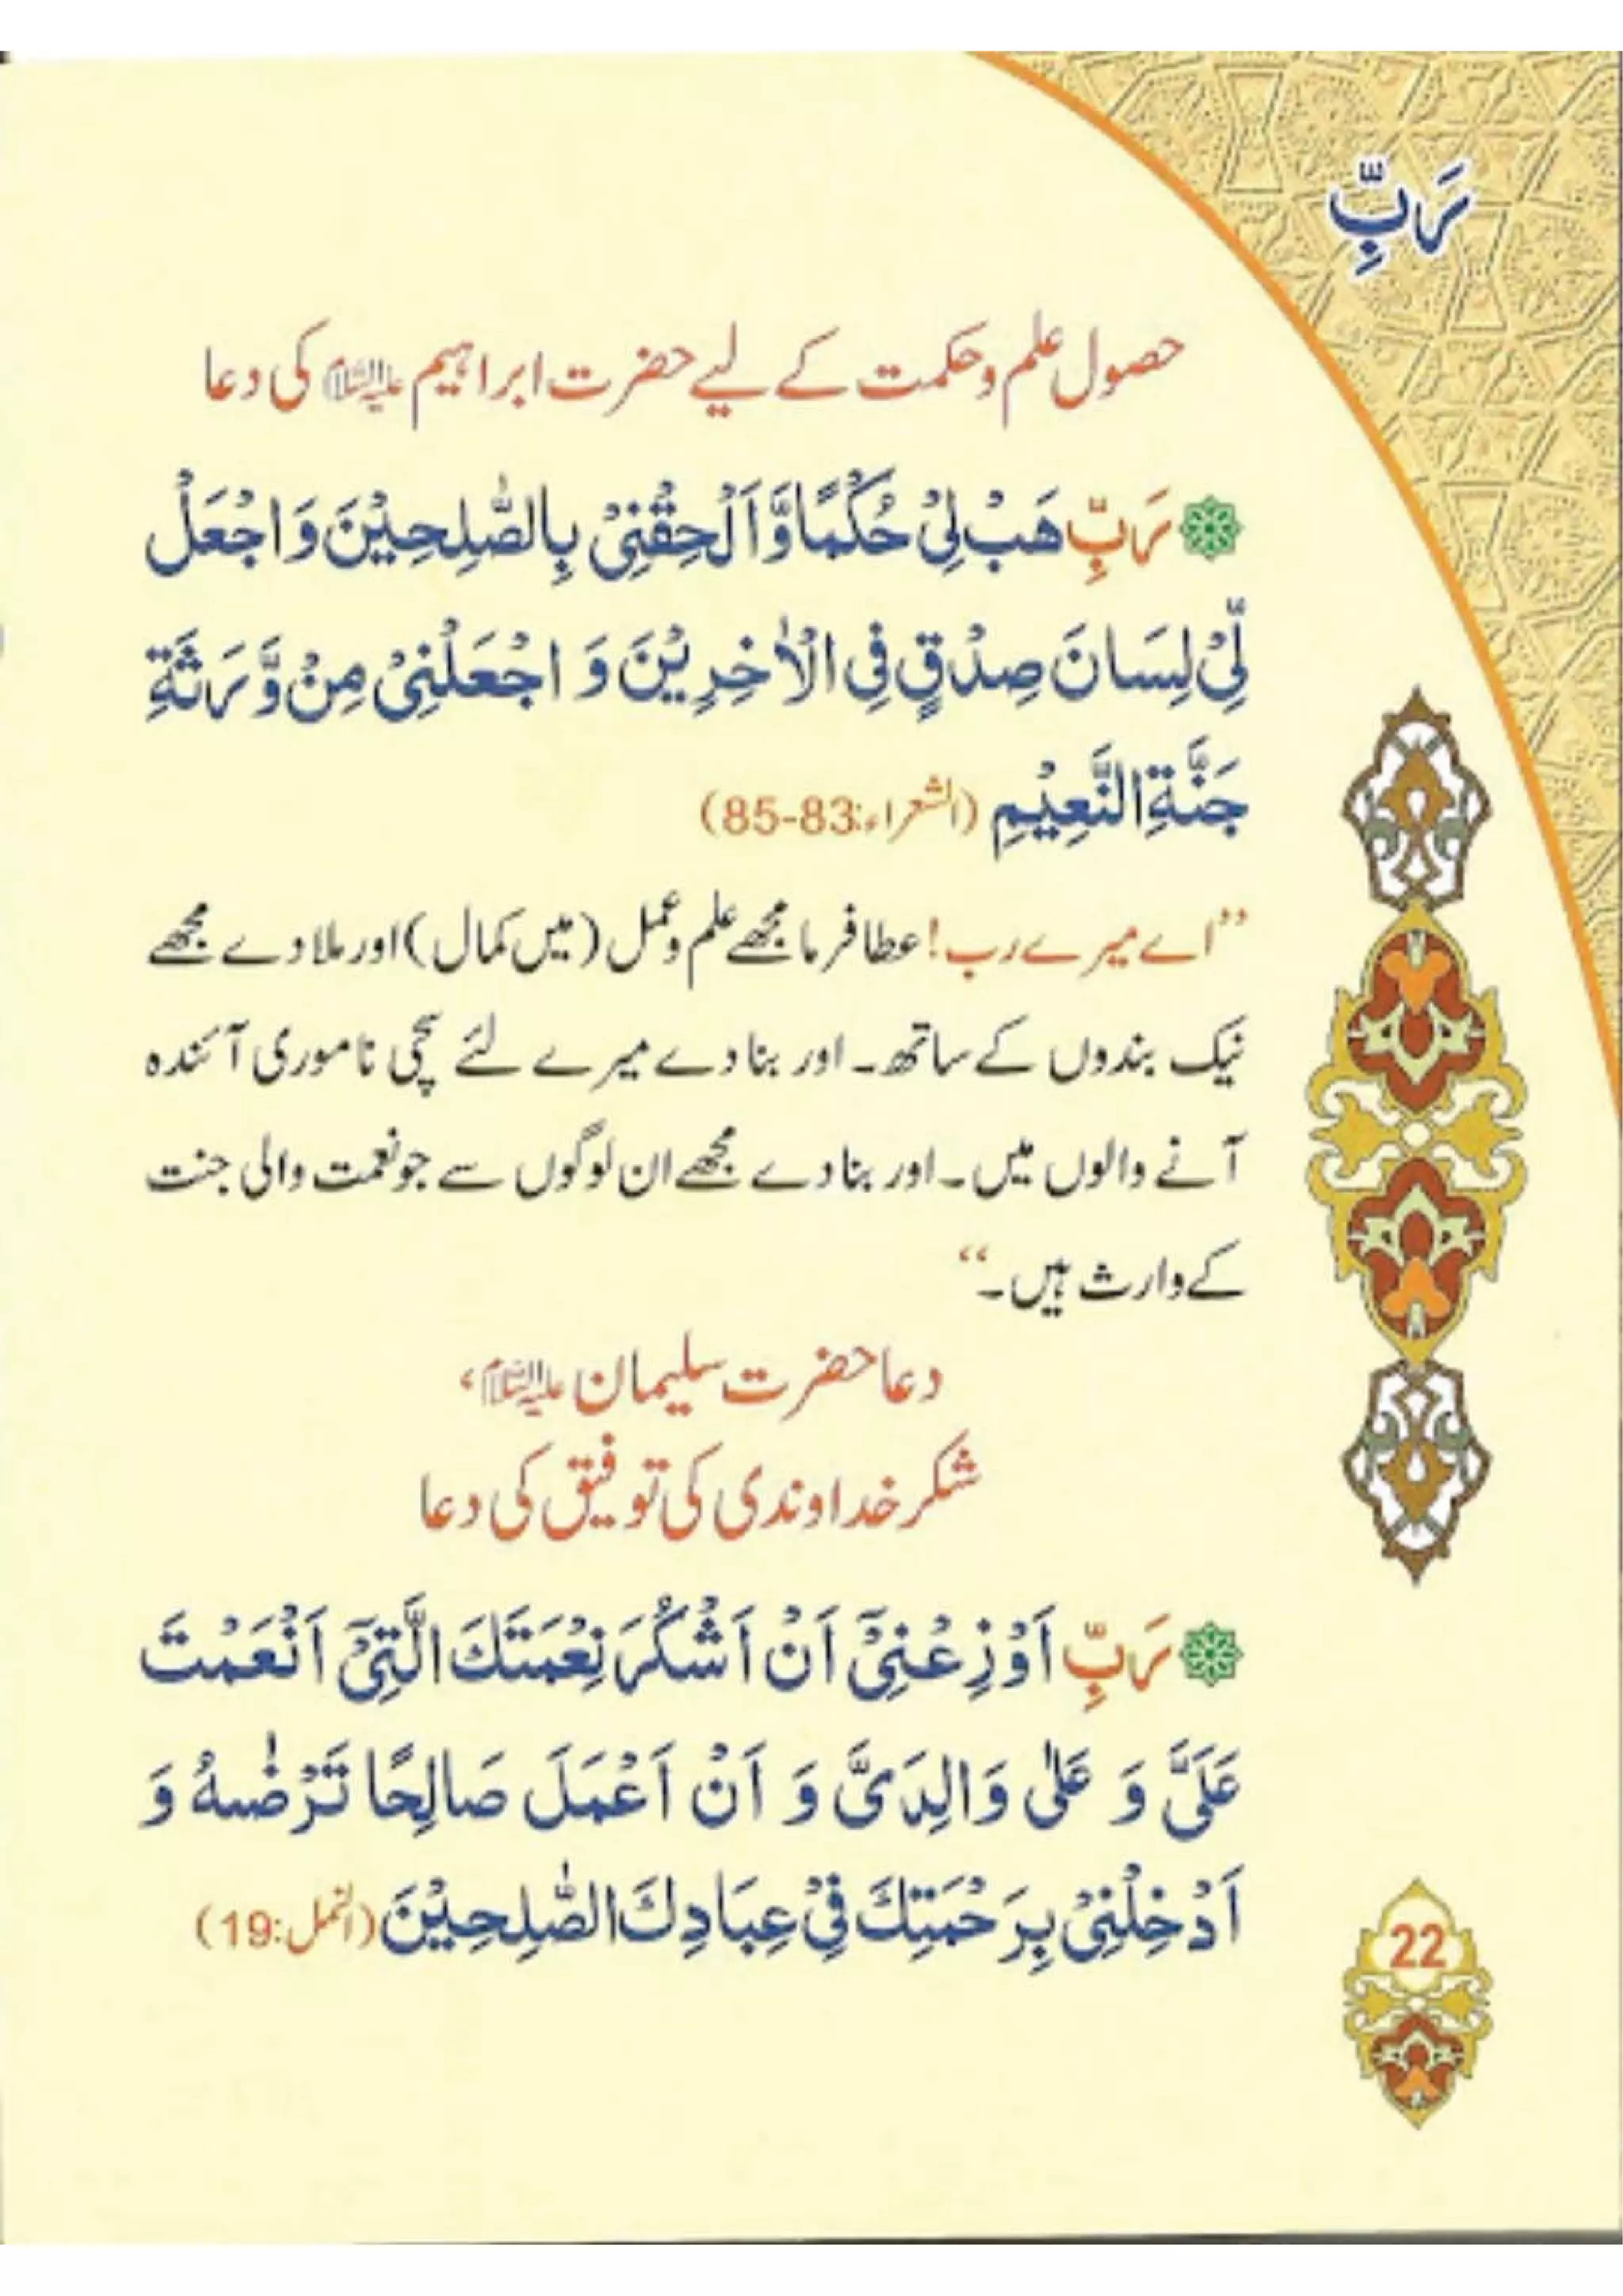 رَبِّ
حصول علم و حکمت کے لیے حضرت ابراہیم علیہ السلام کی دعا
رَبِّ هَبْ لِیْ حُكْمًا وَّ اَلْحِقْنِیْ بِالصّٰلِحِیْنَ وَ اجْعَلْ
لِّیْ لِسَانَ صِدْقٍ فِی الْاٰخِرِیْنَ وَ اجْعَلْنِیْ مِنْ وَّرَثَةِ
جَنَّةِ النَّعِیْمِ (الشعراء:83-85)
”اے میرے رب! عطا فرما مجھے علم و عمل (میں کمال) اور ملا دے مجھے
نیک بندوں کے ساتھ۔ اور بنا دے میرے لئے سچی ناموری آئندہ
آنے والوں میں۔ اور بنا دے مجھے ان لوگوں سے جو نعمت والی جنت
کے وارث ہیں۔“
دعا حضرت سلیمان علیہ السلام،
شکر خداوندی کی توفیق کی دعا
رَبِّ اَوْزِعْنِیْۤ اَنْ اَشْكُرَ نِعْمَتَكَ الَّتِیْۤ اَنْعَمْتَ
عَلَیَّ وَ عَلٰی وَالِدَیَّ وَ اَنْ اَعْمَلَ صَالِحًا تَرْضٰىهُ وَ
اَدْخِلْنِیْ بِرَحْمَتِكَ فِیْ عِبَادِكَ الصّٰلِحِیْنَ (النمل:19)
22